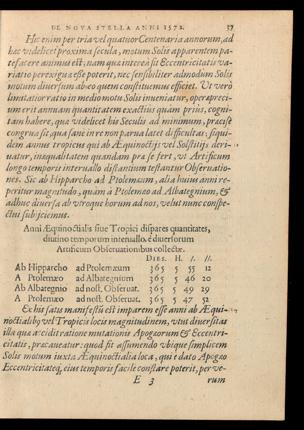 DE NOVA STELLA ANNI 1572. 37
Hæc enim per tria vel quatuor Centenaria annorum, ad
hæc videlicet proxima secula, motum Solis apparentem pa-
tefacere animus est; nam quia interea sit Eccentricitatis va-
riatio perexigua esse poterit, nec sensibiliter admodum Solis
motum diversum ab eo quem constituemus efficiet. Ut verò
minutatior ratio in medio motu Solis inveniatur, operæpreci-
um erit annuam quantitatem exactius quàm priùs, cognitam
habere, quæ videlicet his Seculis ad minimum, præcisè
congrua sit, qua sanè in re non parva latet difficultas; siqui-
dem annus tropicus qui ab Æquinoctijs vel Solstitijs deri-
vatur, inæqualitatem quandam præ se fert, ut Artificum
longo temporis intervallo distantium testantur Observatio-
nes. Sic ab Hipparcho ad Ptolemæum, alia huius anni re-
peritur magnitudo, quàm à Ptolemæo ad Albategnium, &
adhuc diversa ab utroque horum ad nos, velut nunc conspe-
ctui subjiciemus.
Anni Æquinoctialis siue Tropici dispares quantitates,
diutino temporum interuallo, è diuersorum
Artificum Obseruationibus collectæ.
DIES. H. I. II.
Ab Hipparcho ad Ptolemæum 365 5 55 12
A Ptolemæo ad Albategnium 365 5 46 20
Ab Albategnio ad nost. Obseruat. 365 5 49 29
A Ptolemæo ad nost. Obseruat. 365 5 47 52
Ex his satis manifestum est imparem esse anni ab Æqui-
noctialib9 vel Tropicis locis magnitudinem, utut diversitas
illa quæ accidit ratione mutationis Apogæorum & Eccentri-
citatis, præcaueatur: quod fit assumendo ubique simplicem
Solis motum iuxta Æquinoctialia loca, qui è dato Apogæo
Eccentricitateq, eius temporis facile constare poterit, per ve-
E 3 rum